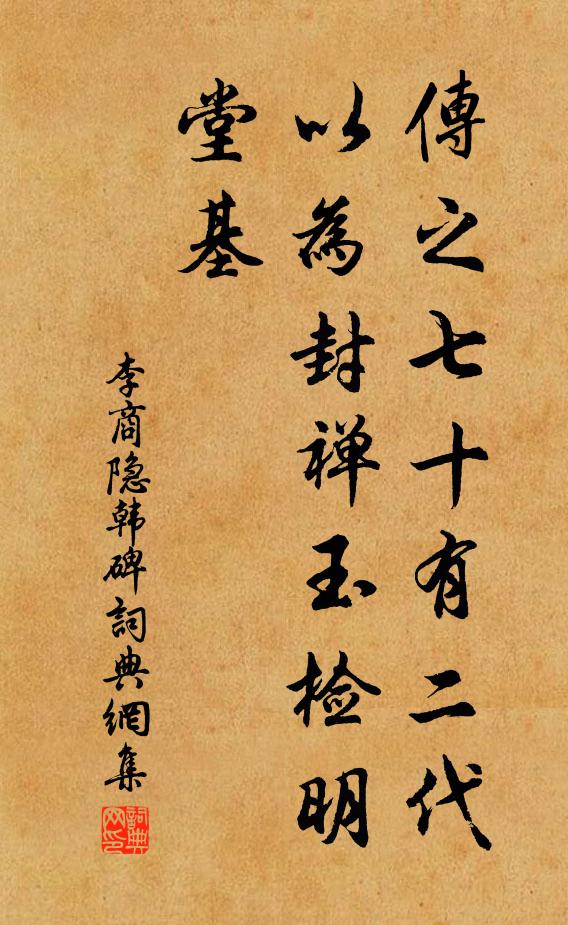 傳之七十有二代
以為封禅玉检明
堂基
李商隐韩碑詞典網集
詞典
网印